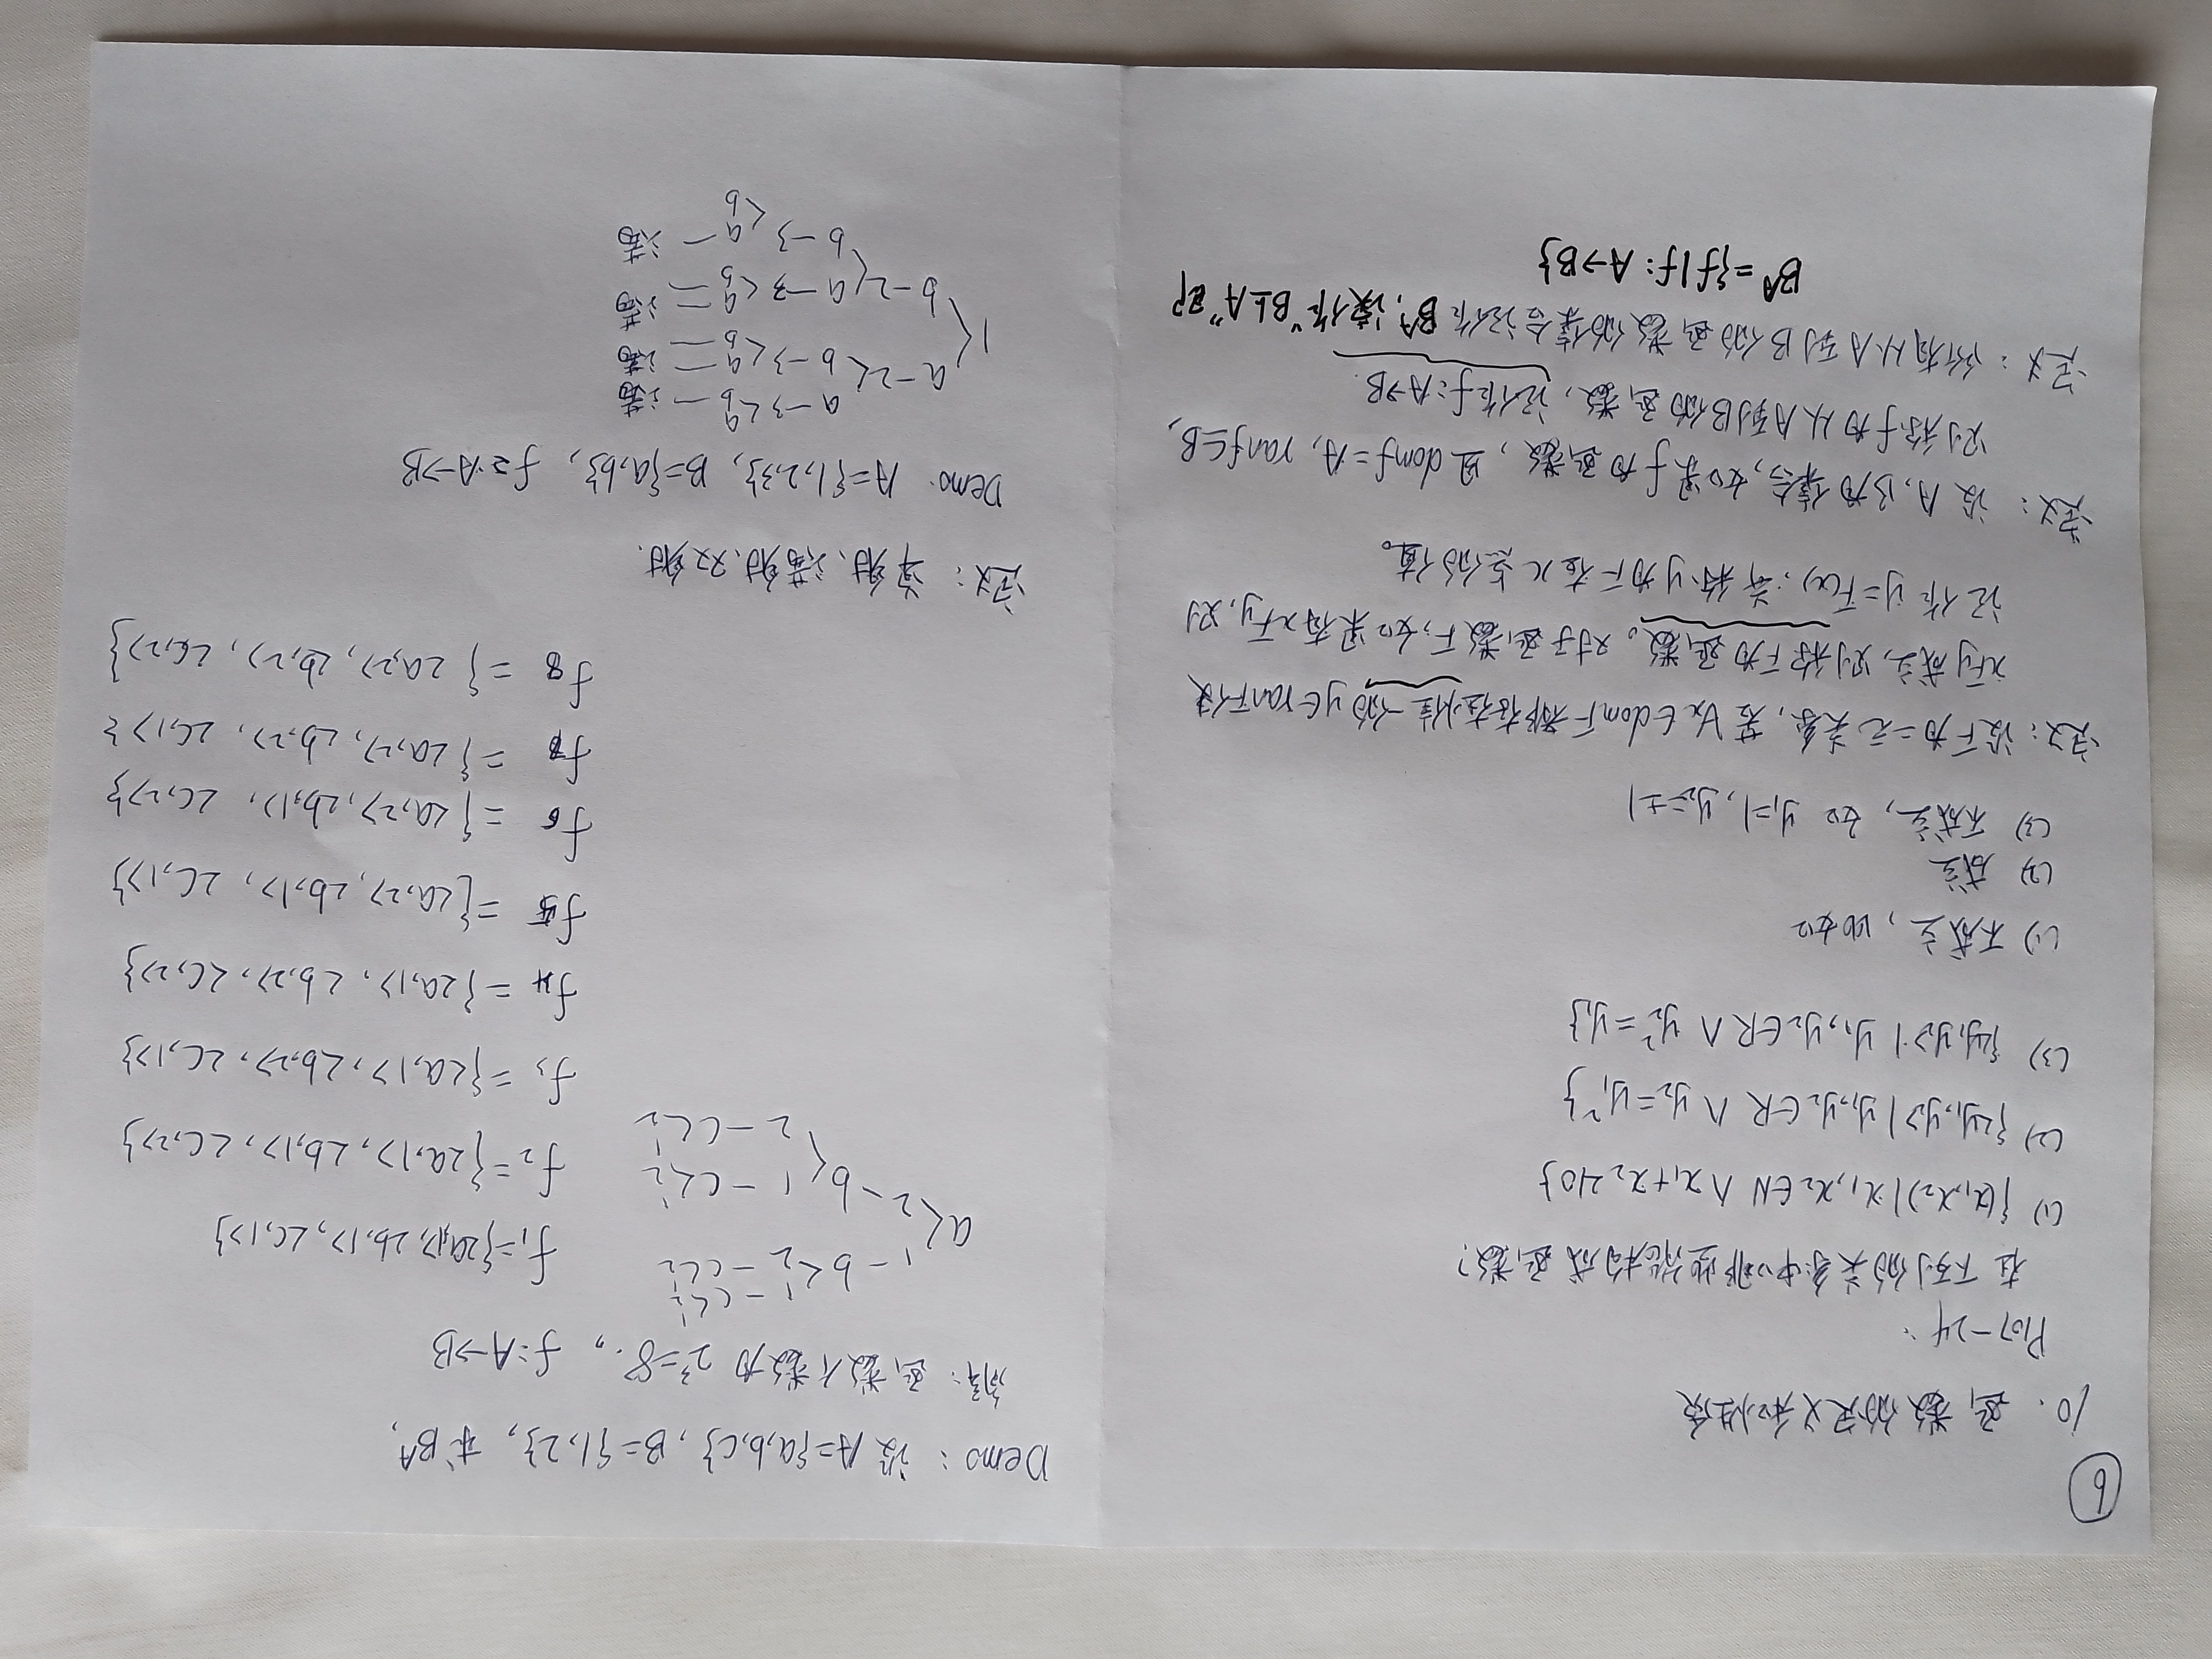 6
10. 函数的定义和性质
P107-24:
在下列的关系中哪些能构成函数?
(1) {(x₁,x₂)|x₁,x₂∈N ∧ x₁+x₂<10}
(2) {<y₁,y₂>| y₁,y₂∈R ∧ y₂=y₁²}
(3) {<y₁,y₂>| y₁,y₂∈R ∧ y₂²=y₁}
(1) 不成立, 比如
(2) 成立
(3) 不成立, 如 y₁=1, y₂=±1
定义: 设F为二元关系, 若∀x∈domF都存在唯一的y∈ranF使
xFy成立, 则称F为函数。对于函数F, 如果有xFy, 则
记作 y=F(x), 并称y为F在x点的值。
定义: 设A,B为集合, 如果f为函数, 且domf=A, ranf⊆B,
则称f为从A到B的函数, 记作f:A→B.
定义: 所有从A到B的函数的集合记作Bᴬ, 读作“B上A”即
Bᴬ={f|f: A→B}
Demo: 设A={a,b,c}, B={1,2}, 求Bᴬ,
解: 函数个数为 2³=8., f:A→B
1 - c< 1 2
a< 1 - b< 2 - c< 1 2
2 - b< 1 - c< 1 2
2 - c< 1 2
f₁={<a,1>, <b,1>, <c,1>}
f₂={<a,1>, <b,1>, <c,2>}
f₃={<a,1>, <b,2>, <c,1>}
f₄={<a,1>, <b,2>, <c,2>}
f₅={<a,2>, <b,1>, <c,1>}
f₆={<a,2>, <b,1>, <c,2>}
f₇={<a,2>, <b,2>, <c,1>}
f₈={<a,2>, <b,2>, <c,2>}
定义: 单射、满射、双射.
Demo. A={1,2,3}, B={a,b}, f:A→B
a-3< a b — 满
1< a-2< b-3< a b = 满
b-2< a-3< a b = 满
b-3< a b — 满